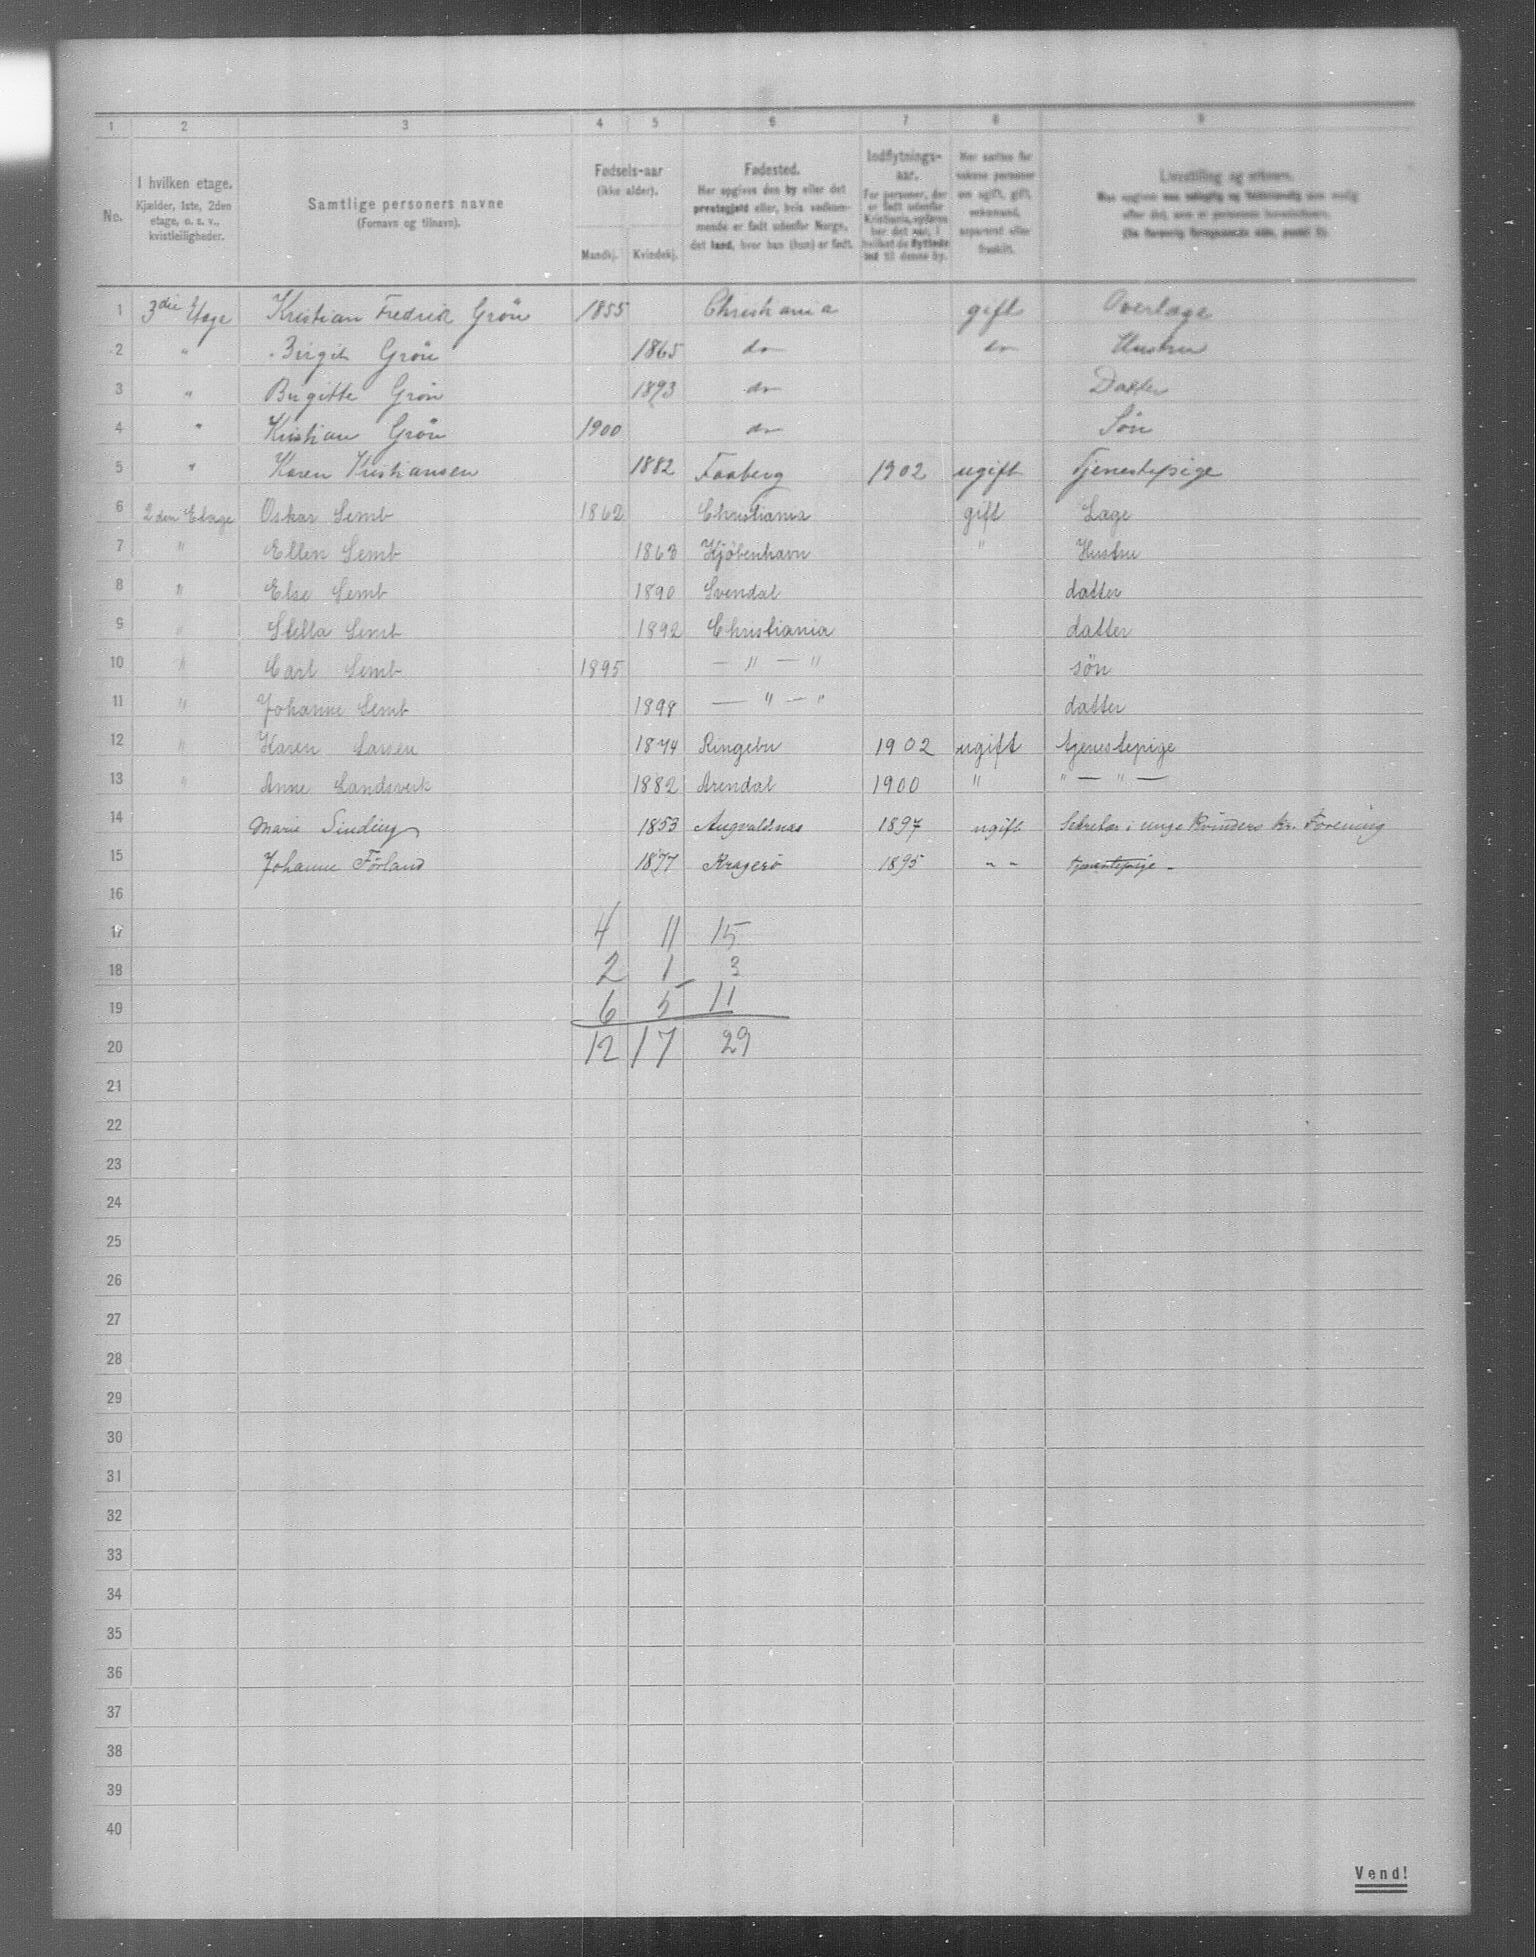 1 2 3 4 5 6 7 8 9
No. I hvilken etage. Kjælder, 1ste, 2den etage, o. s. v., kvistleiligheder. Samtlige personers navne (Fornavn og tilnavn). Fødsels-aar (ikke alder). Mandkj. Kvindekj. Fødested. Her opgives den by eller det prestegjeld eller, hvis vedkommende er født udenfor Norge, det land, hvor han (hun) er født. Indflytnings-aar. For personer, der er født udenfor Kristiania, opføres her det aar, i hvilket de flyttede ind til denne by. Her sættes for voksne personer om ugift, gift, enkemand, separeret eller fraskilt. Livsstilling og erhverv.
1 3die Etage Kristian Fredrik Grön 1855 Christiania gift Overlæge
2 " Birgit Grön 1865 do do Hustru
3 " Birgitte Grön 1893 do Datter
4 " Kristian Grön 1900 do Sön
5 " Karen Kristiansen 1882 Faaberg 1902 ugift Tjenestepige
6 2den Etage Oskar Semb 1862 Christiania gift Læge
7 " Ellen Semb 1863 Kjøbenhavn " Hustru
8 " Else Semb 1890 Svendal datter
9 " Stella Semb 1892 Christiania datter
10 " Carl Semb 1895 — " — " sön
11 " Johanne Semb 1898 — " — " datter
12 " Karen Larsen 1874 Ringebu 1902 ugift tjenestepige
13 " Anne Landsverk 1882 Arendal 1900 " " — " —
14 Marie Sinding 1853 Augvaldnæs 1897 ugift Sekretær i unge Kvinders kr. Forening
15 Johanne Förland 1877 Kragerö 1895 " " tjenestepige
16
17 4 11 15
18 2 1 3
19 6 5 11
20 12 17 29
21
22
23
24
25
26
27
28
29
30
31
32
33
34
35
36
37
38
39
40
Vend!